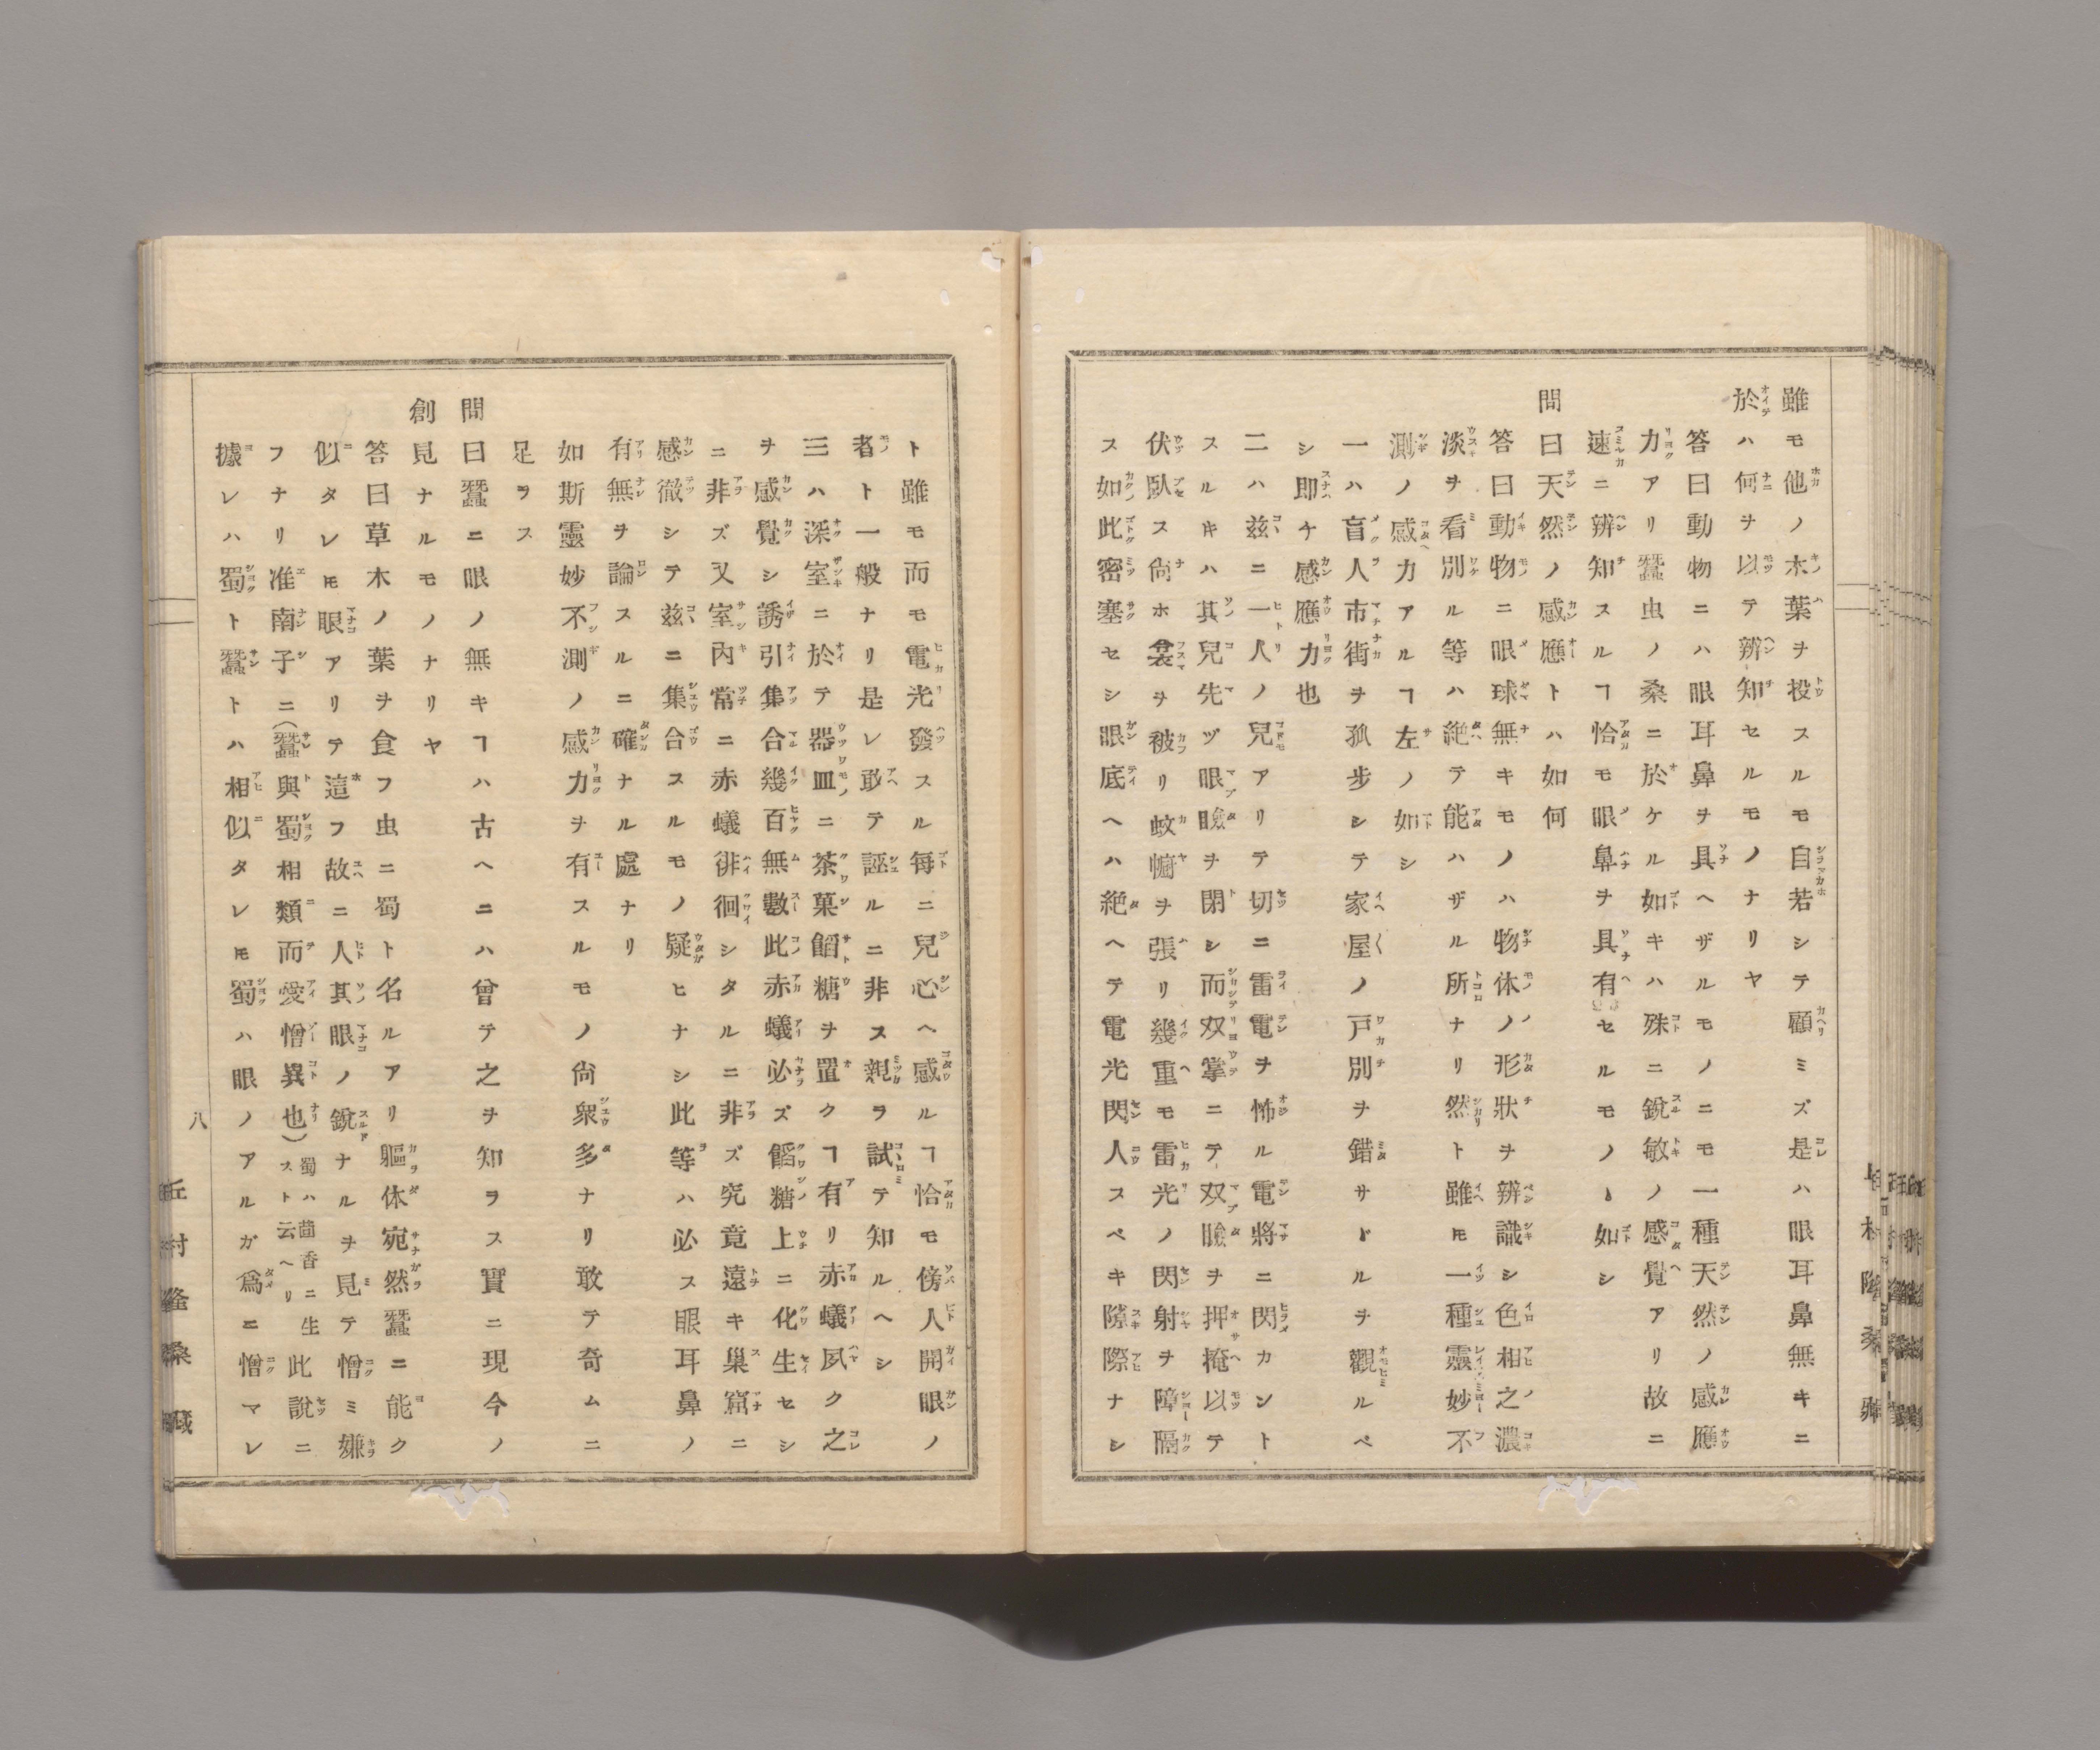 雖モ他ノ木葉ヲ投スルモ自若シテ顧ミズ是ハ眼耳鼻無キニ
於ハ何ヲ以テ辨知セルモノナリヤ
答曰動物ニハ眼耳鼻ヲ具ヘザルモノニモ一種天然ノ感應
力アリ蠶虫ノ桑ニ於ケル如キハ殊ニ銳敏ノ感覺アリ故ニ
速ニ辨知スルヿ恰モ眼鼻ヲ具有セルモノヽ如シ
問曰天然ノ感應トハ如何
答曰動物ニ眼球無キモノハ物休ノ形狀ヲ辨識シ色相之濃
淡ヲ看別ル等ハ絶テ能ハザル所ナリ然ト雖モ一種靈妙不
測ノ感力アルヿ左ノ如シ
一ハ盲人市街ヲ孤步シテ家屋ノ戶別ヲ錯サヾルヲ觀ルベ
シ即チ感應力也
二ハ玆ニ一人ノ兒アリテ切ニ雷電ヲ怖ル電將ニ閃カント
スルキハ其兒先ヅ眼瞼ヲ閉シ而双掌ニテ双瞼ヲ押掩以テ
伏臥ス尙ホ衾ヲ被リ蚊幮ヲ張リ幾重モ雷光ノ閃射ヲ障隔
ス如此密塞セシ眼底ヘハ絶ヘテ電光閃人スベキ隙際ナシ
ト雖モ而モ電光發スル每ニ兒心ヘ感ルヿ恰モ傍人開眼ノ
者ト一般ナリ是レ敢テ誣ルニ非ス親ヲ試テ知ルヘシ
三ハ深室ニ於テ器皿ニ茶菓餡糖ヲ置クヿ有リ赤蟻夙ク之
ヲ感覺シ誘引集合幾百無數此赤蟻必ズ餡糖上ニ化生セシ
ニ非ズ又室內常ニ赤蟻徘徊シタルニ非ズ究竟遠キ巢窟ニ
感徹シテ玆ニ集合スルモノ疑ヒナシ此等ハ必ス眼耳鼻ノ
有無ヲ論スルニ確ナル處ナリ
如斯靈妙不測ノ感力ヲ有スルモノ尙衆多ナリ敢テ奇ムニ
足ヲス
問曰蠶ニ眼ノ無キヿハ古ヘニハ曾テ之ヲ知ヲス實ニ現今ノ
創見ナルモノナリヤ
答曰草木ノ葉ヲ食フ虫ニ蜀ト名ルアリ軀休宛然蠶ニ能ク
似タレ𪜈眼アリテ這フ故ニ人其眼ノ銳ナルヲ見テ憎ミ嫌
フナリ准南子ニ(蠶與蜀相類而愛憎異也)蜀ハ茴香ニ生スト云ヘリ此說ニ
據レハ蜀ト蠶トハ相似タレ𪜈蜀ハ眼ノアルガ爲ニ憎マレ
八
丘村隆桑藏